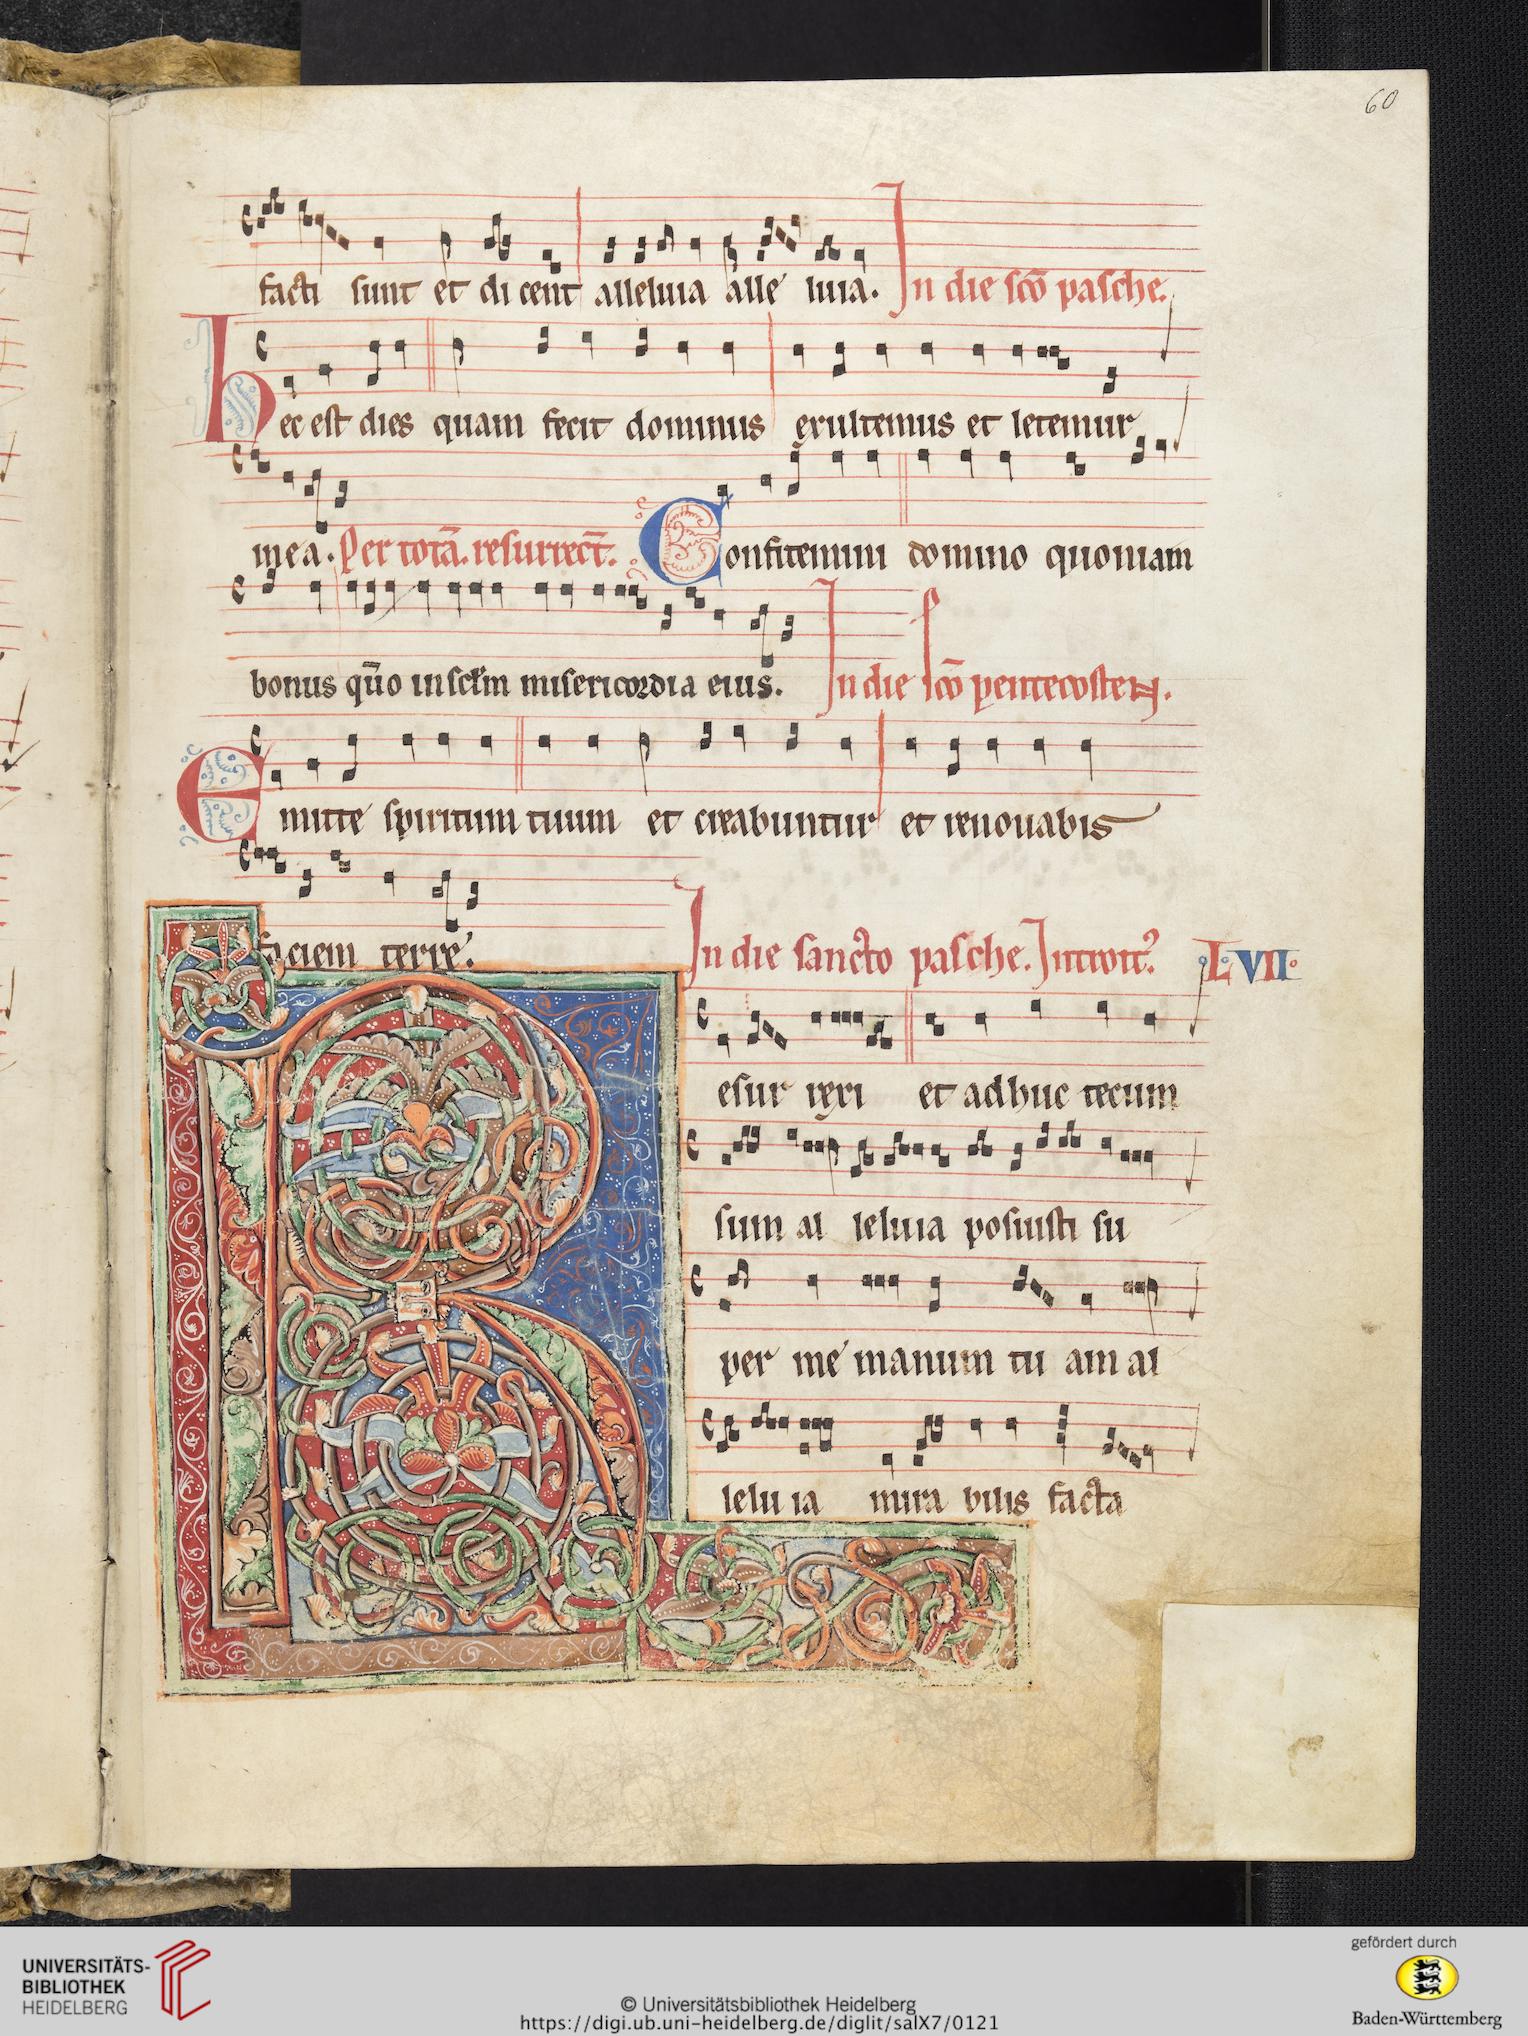 60
facti sunt et dicent alleluia alle luia. In die sco̅ pasche.
Hec est dies quam fecit dominus exultemus et letemur
in ea. Per tota̅. resurrect̅. Confitemini domino quoniam
bonus qu̅o in sclm̅ misericordia eius. In die sco̅ pentecosten.
Emitte spiritum tuum et creabuntur et renouabis
faciem terre. In die sancto pasche. Introit᾽. LVII.
Resur rexi et adhuc tecum
sum al leluia posuisti su
per me manum tu am al
lelu ia mira bilis facta
UNIVERSITÄTS-
BIBLIOTHEK
HEIDELBERG
© Universitätsbibliothek Heidelberg
https://digi.ub.uni-heidelberg.de/diglit/salX7/0121
gefördert durch
Baden-Württemberg